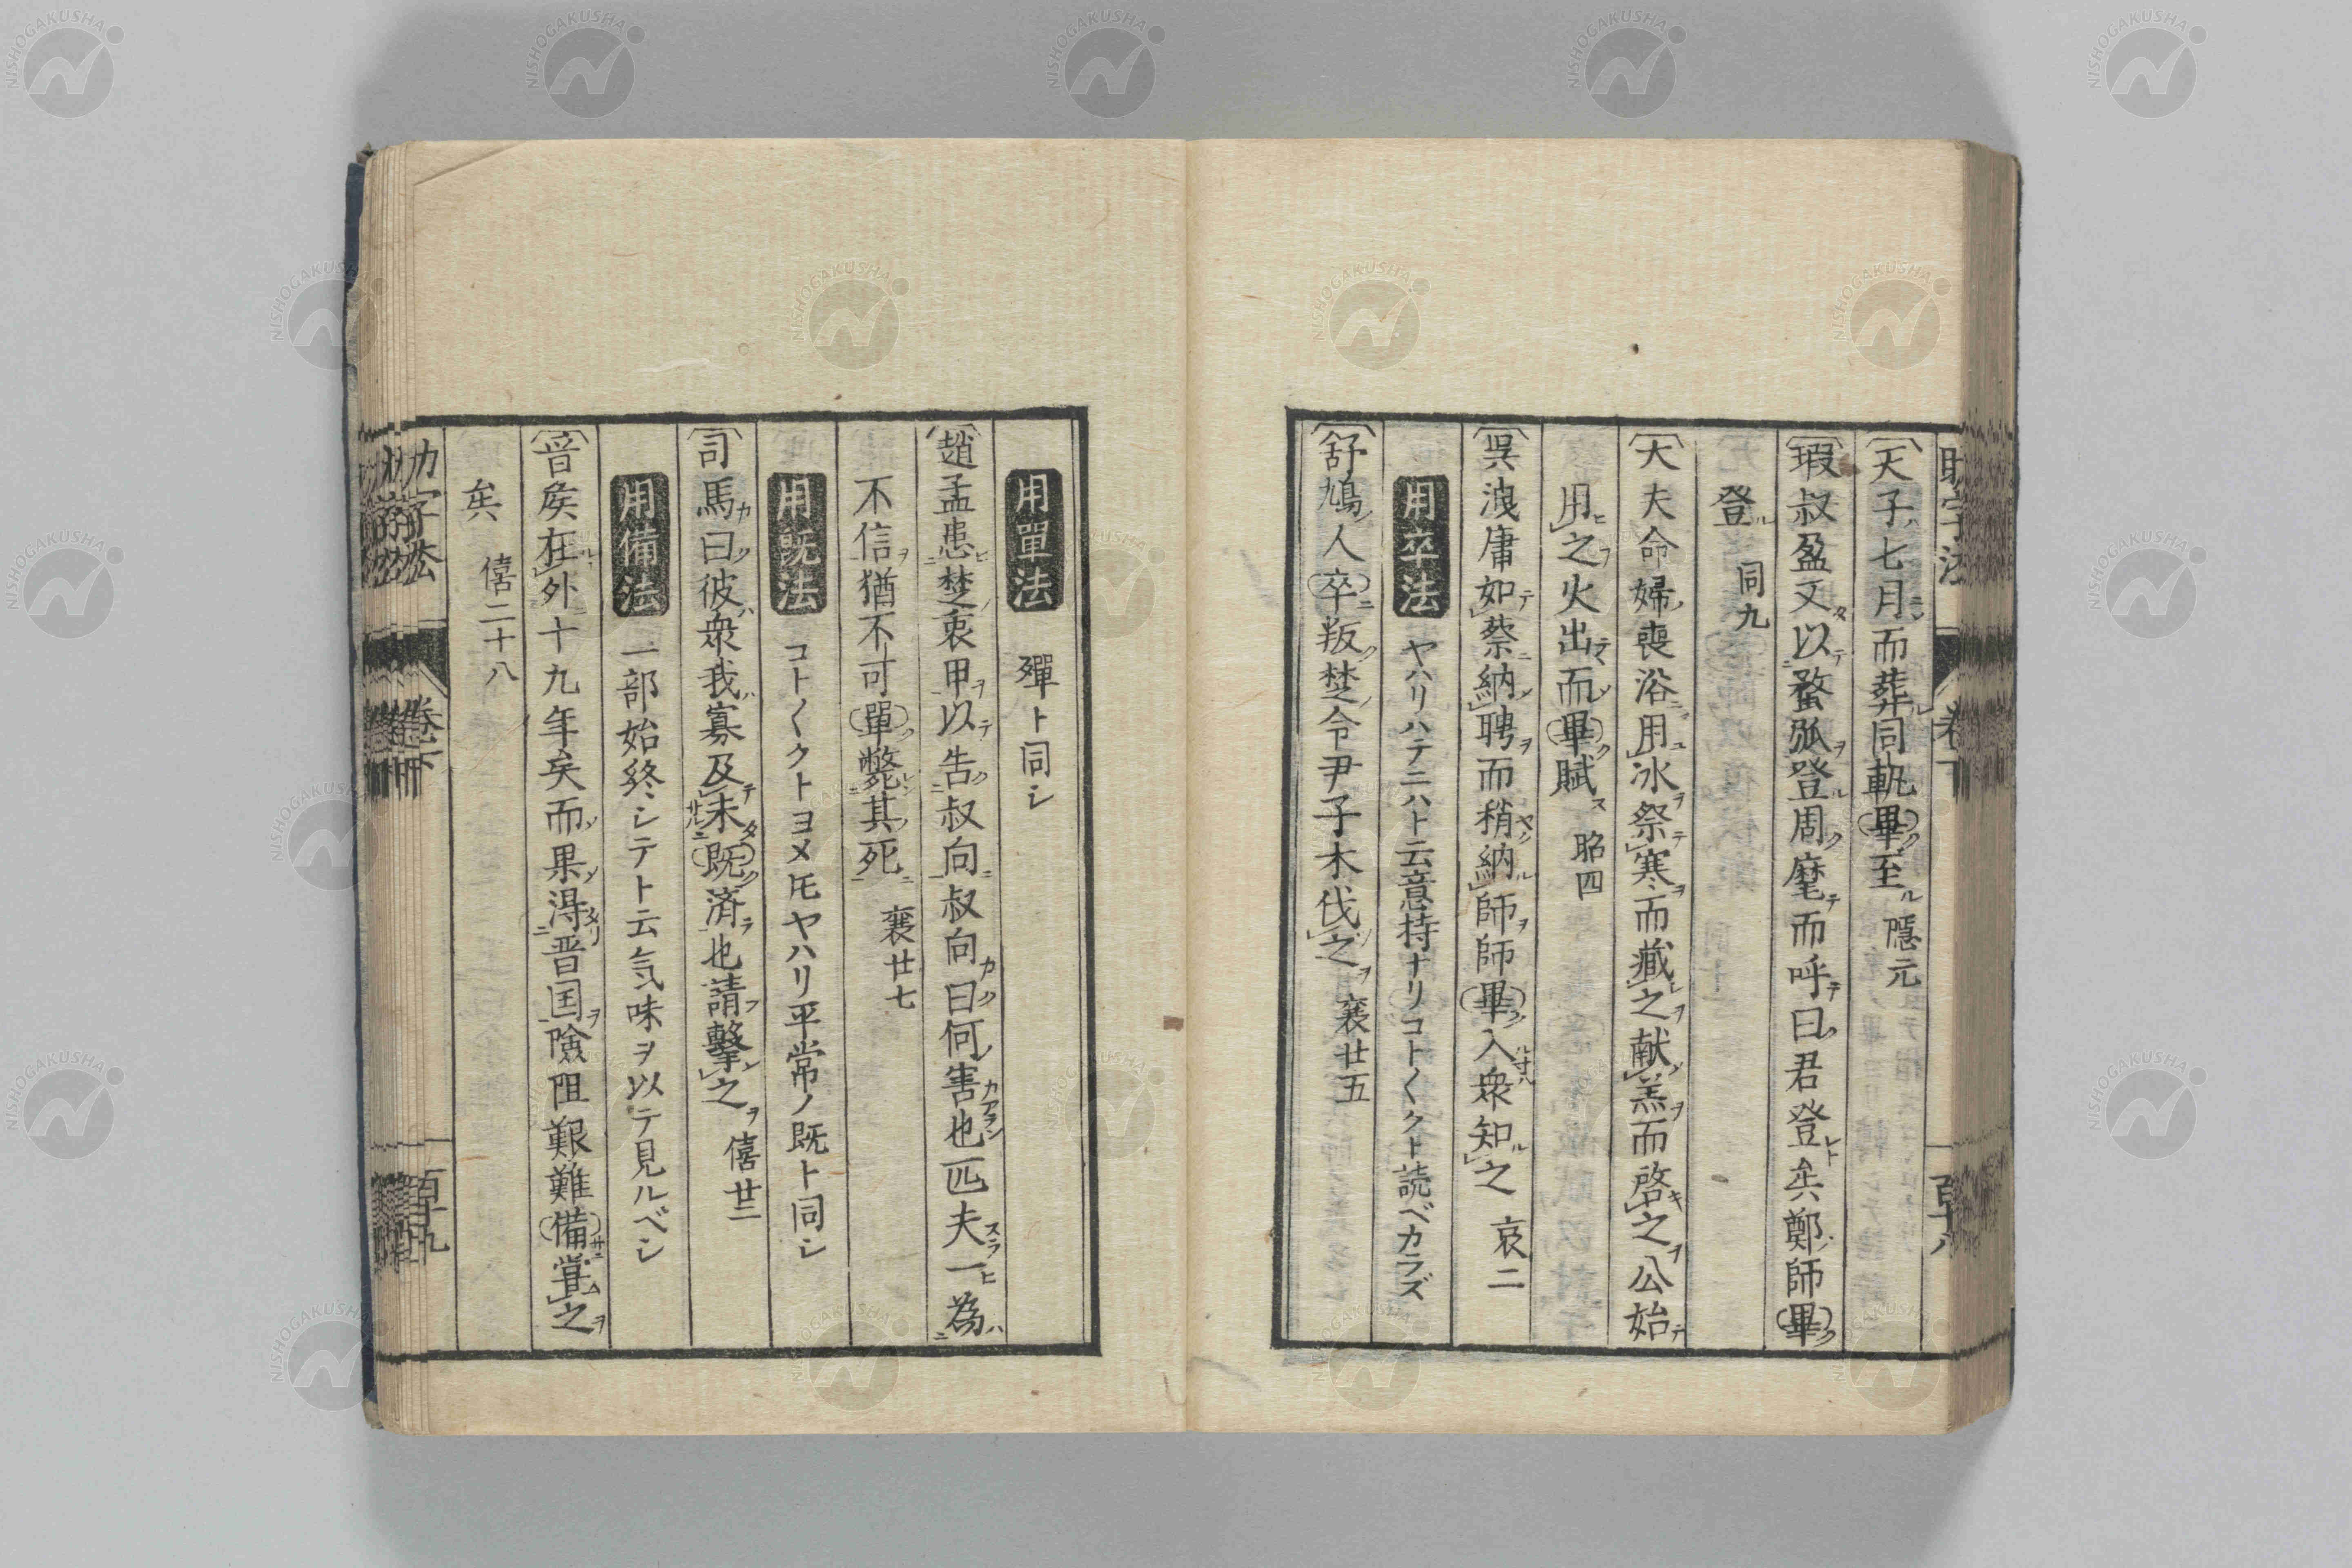 天子七月而葬同軌畢至 隱元
瑕叔盈又以蝥弧登周麾而呼曰君登矣鄭師畢
登 同九
大夫命婦喪浴用冰祭寒而藏之献羔而啓之公始
用之火出而畢賦 昭四
呉洩庸如蔡納聘而稍納師師畢入衆知之 哀二
用卒法 ヤハリハテニハト云意持ナリコト〱クト読ベカラズ
舒鳩人卒叛楚令尹子木伐之 襄廿五
用單法 殫ト同シ
趙孟患楚衷甲以告叔向叔向曰何害也匹夫一為
不信猶不可單斃其死 襄廿七
用既法 コト〱クトヨメ𪜈ヤハリ平常ノ既ト同シ
司馬曰彼衆我寡及未既済也請擊之 僖廿二
用備法 一部始終ヽシテト云気味ヲ以テ見ルベシ
晉矦在外十九年矣而果得晋国險阻艱難備甞之
矣 僖二十八
字法 卷下 百十九
NISHOGAKUSHA